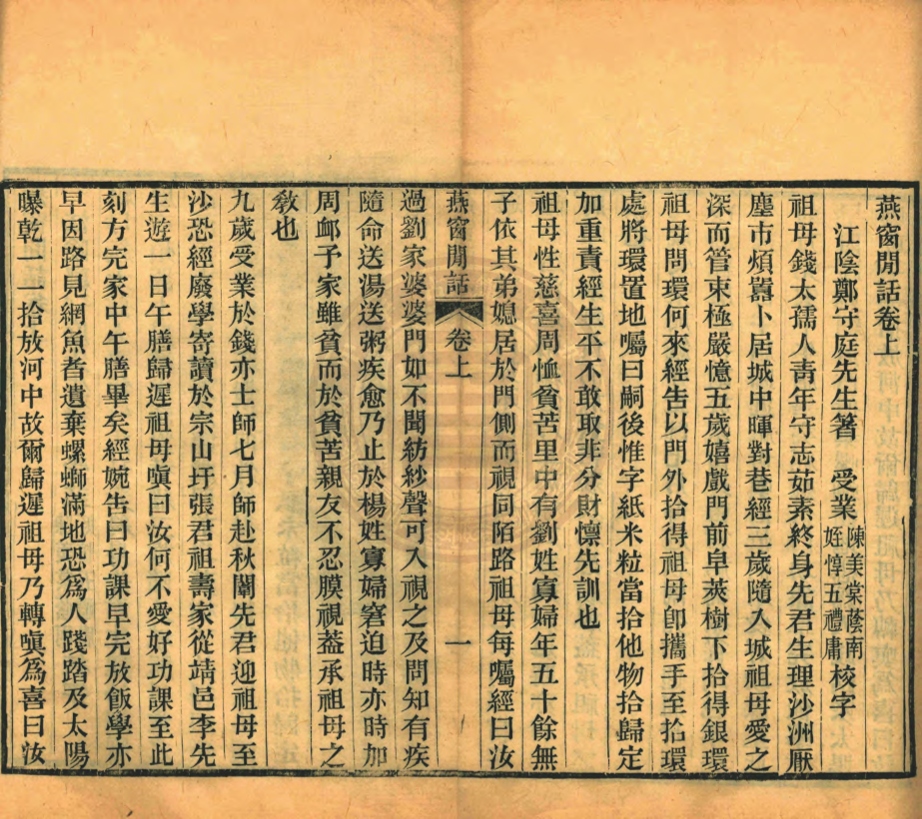 燕窗閒話卷上
江陰鄭守庭先生著 受業陳美棠蔭南姪惇五禮庸校字
祖母錢太孺人青年守志茹素終身先君生理沙洲厭
塵市煩囂卜居城中暉對巷經三歲隨入城祖母愛之
深而管束極嚴憶五歲嬉戲門前皁莢樹下拾得銀環
祖母問環何來經告以門外拾得祖母卽攜手至拾環
處將環置地囑曰嗣後惟字紙米粒當拾他物拾歸定
加重責經生平不敢取非分財懍先訓也
祖母性慈喜周恤貧苦里中有劉姓寡婦年五十餘無
子依其弟媳居於門側而視同陌路祖母每囑經曰汝
燕窗閒話 卷上 一
過劉家婆婆門如不聞紡紗聲可入視之及問知有疾
隨命送湯送粥疾愈乃止於楊姓寡婦窘迫時亦時加
周卹予家雖貧而於貧苦親友不忍膜視葢承祖母之
敎也
九歲受業於錢亦士師七月師赴秋闈先君迎祖母至
沙恐經廢學寄讀於宗山圩張君祖壽家從靖邑李先
生遊一日午膳歸遲祖母嗔曰汝何不愛好功課至此
刻方完家中午膳畢矣經婉告曰功課早完放飯學亦
早因路見網魚者遺棄螺螄滿地恐爲人踐踏及太陽
曝乾一一拾放河中故爾歸遲祖母乃轉嗔爲喜曰汝